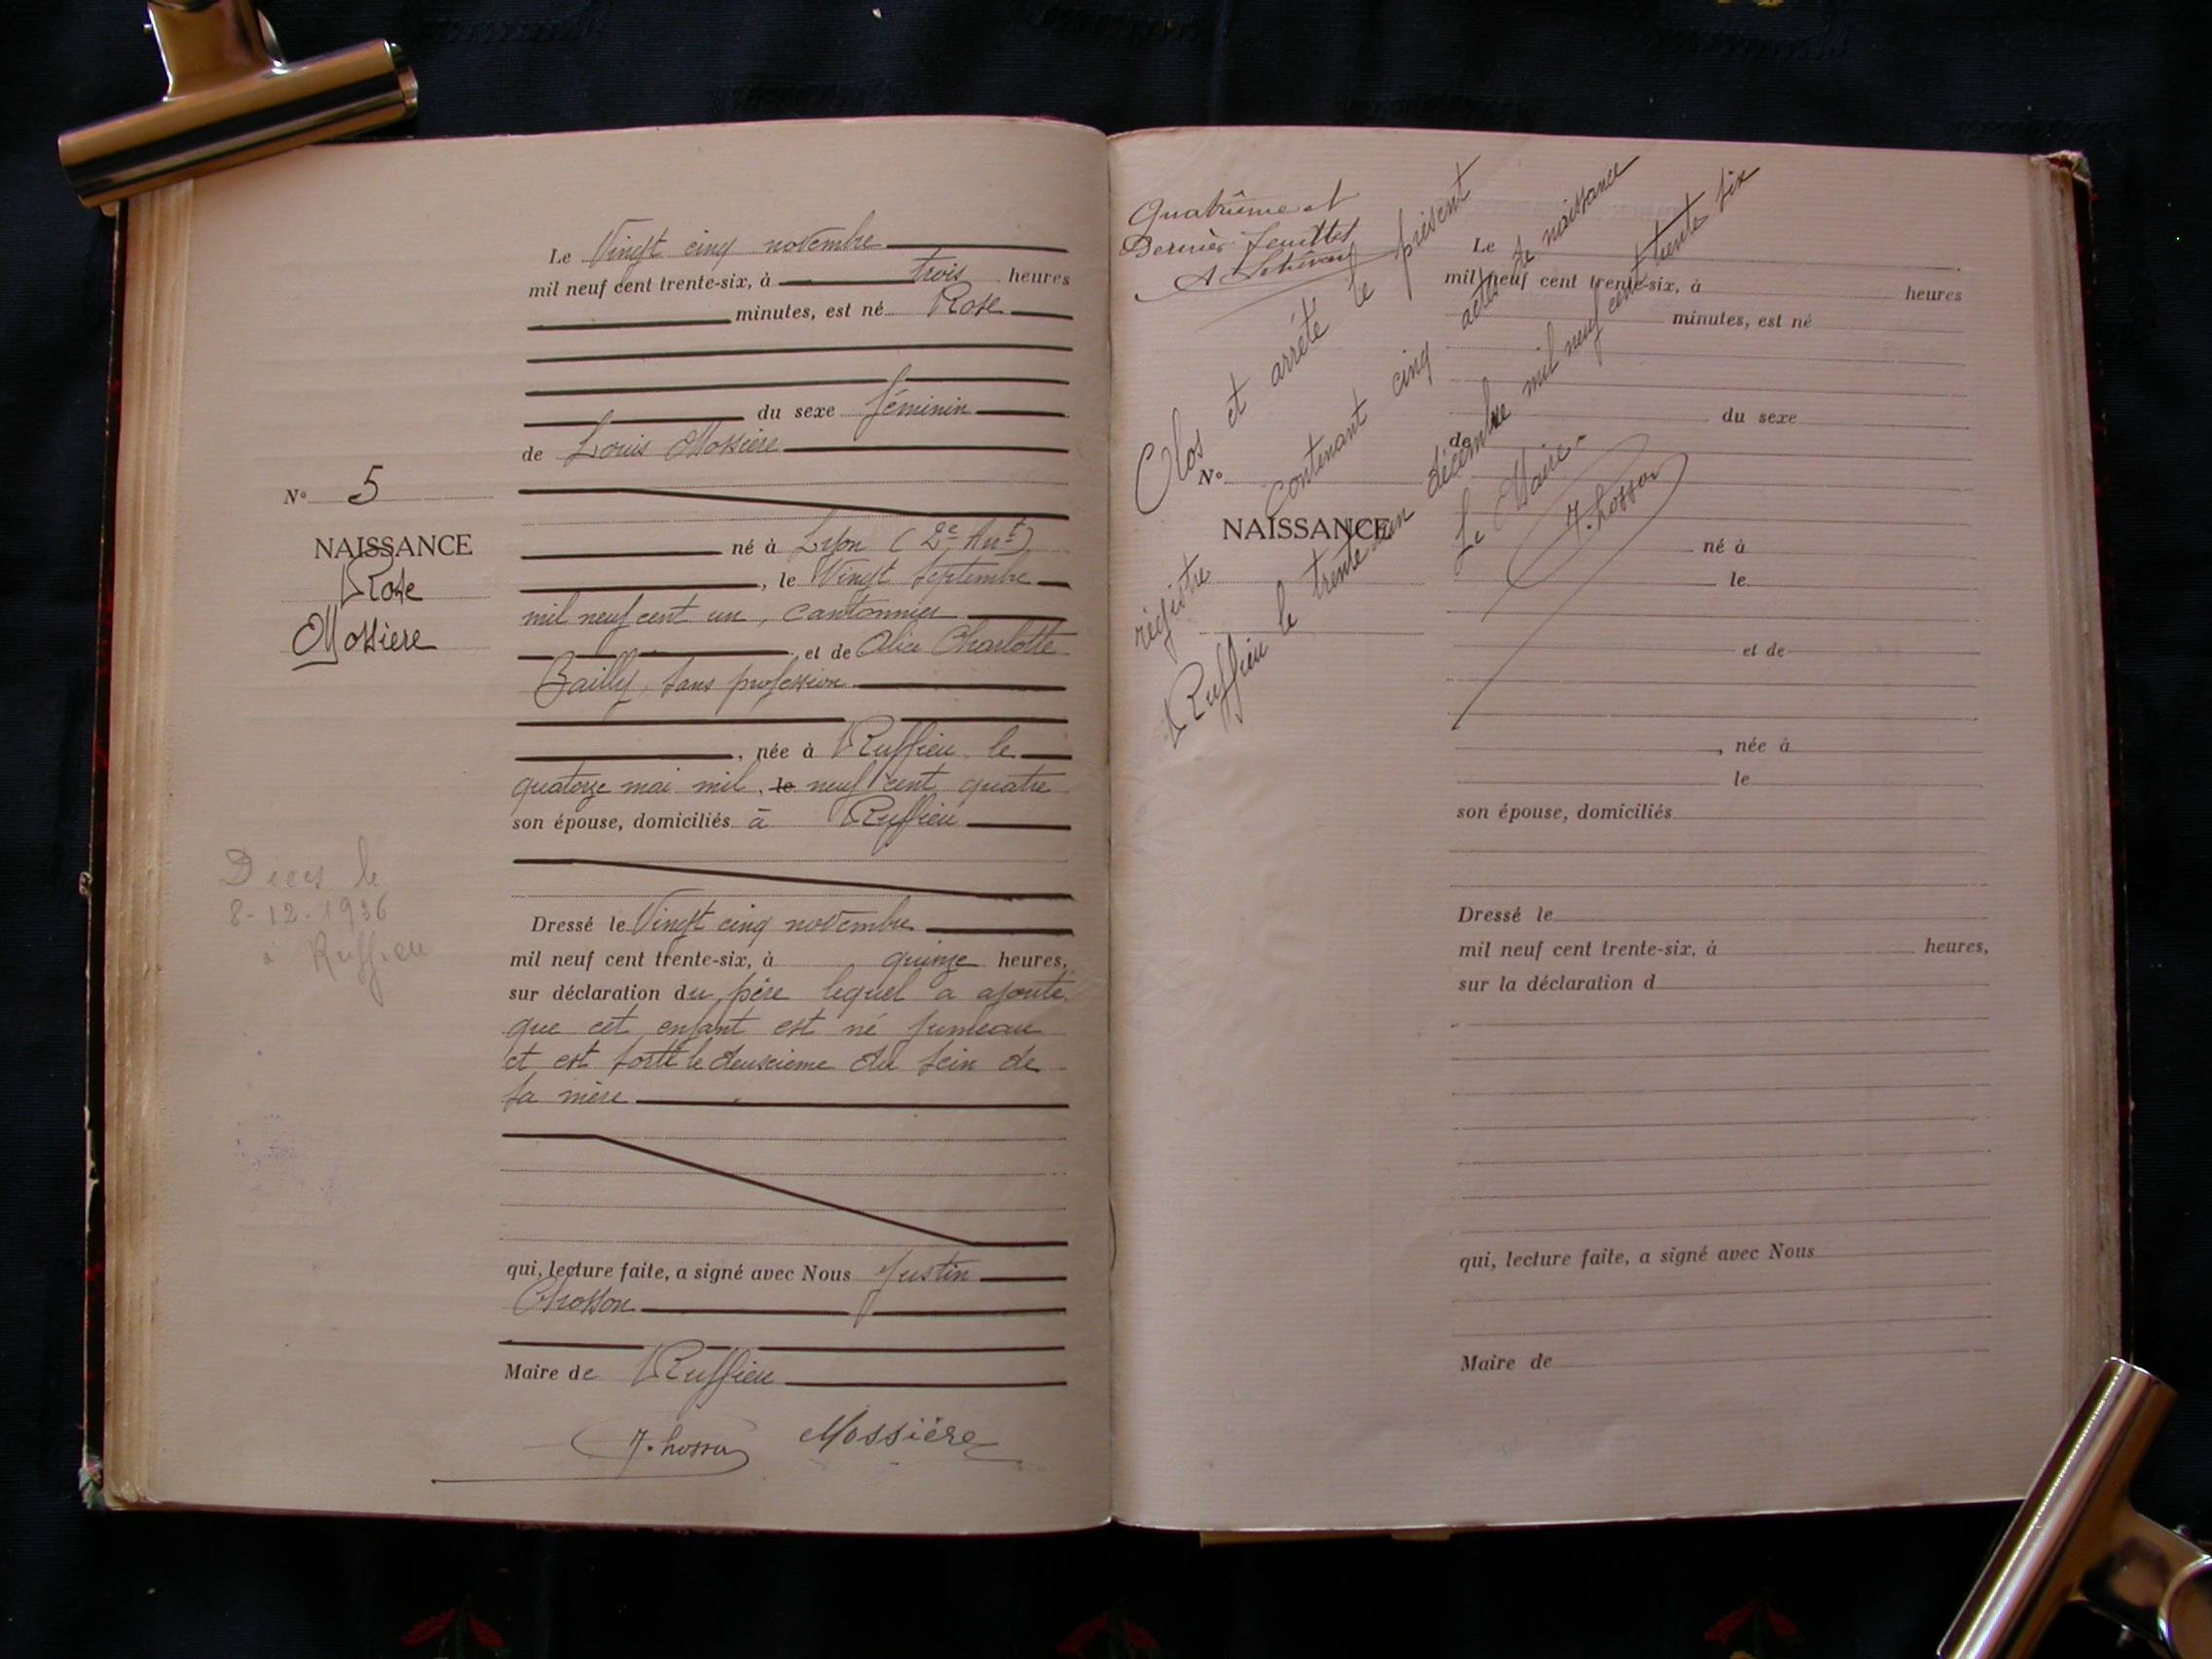 Le Vingt cinq novembre
mil neuf cent trente-six, à trois heures
minutes, est né Rose
du sexe féminin
de Louis Mossière
N° 5
NAISSANCE
Rose
Mossière
né à Lyon (2e Arrt)
, le Vingt septembre
mil neuf cent un, cantonnier
, et de Alice Charlotte
Bailly, sans profession
, née à Ruffieu le
quatorze mai mil, le neuf cent quatre
son épouse, domiciliés à Ruffieu
Décès le
8-12-1936
à Ruffieu
Dressé le Vingt cinq novembre
mil neuf cent trente-six, à quinze heures,
sur déclaration du père lequel a ajouté
que cet enfant est né jumeau
et est sorti le deuxième du sein de
sa mère
qui, lecture faite, a signé avec Nous Justin
Chosson
Maire de Ruffieu
Mossière
Quatrième et
Dernier feuillet
Clos et arrêté le présent
régistre contenant cinq actes de naissance
à Ruffieu le trente un décembre mil neuf cent trente six
Le Maire
Le
mil neuf cent trente-six, à heures
minutes, est né
du sexe
de
N°
NAISSANCE
né à
le
et de
, née à
le
son épouse, domiciliés
Dressé le
mil neuf cent trente-six, à heures,
sur la déclaration d
qui, lecture faite, a signé avec Nous
Maire de